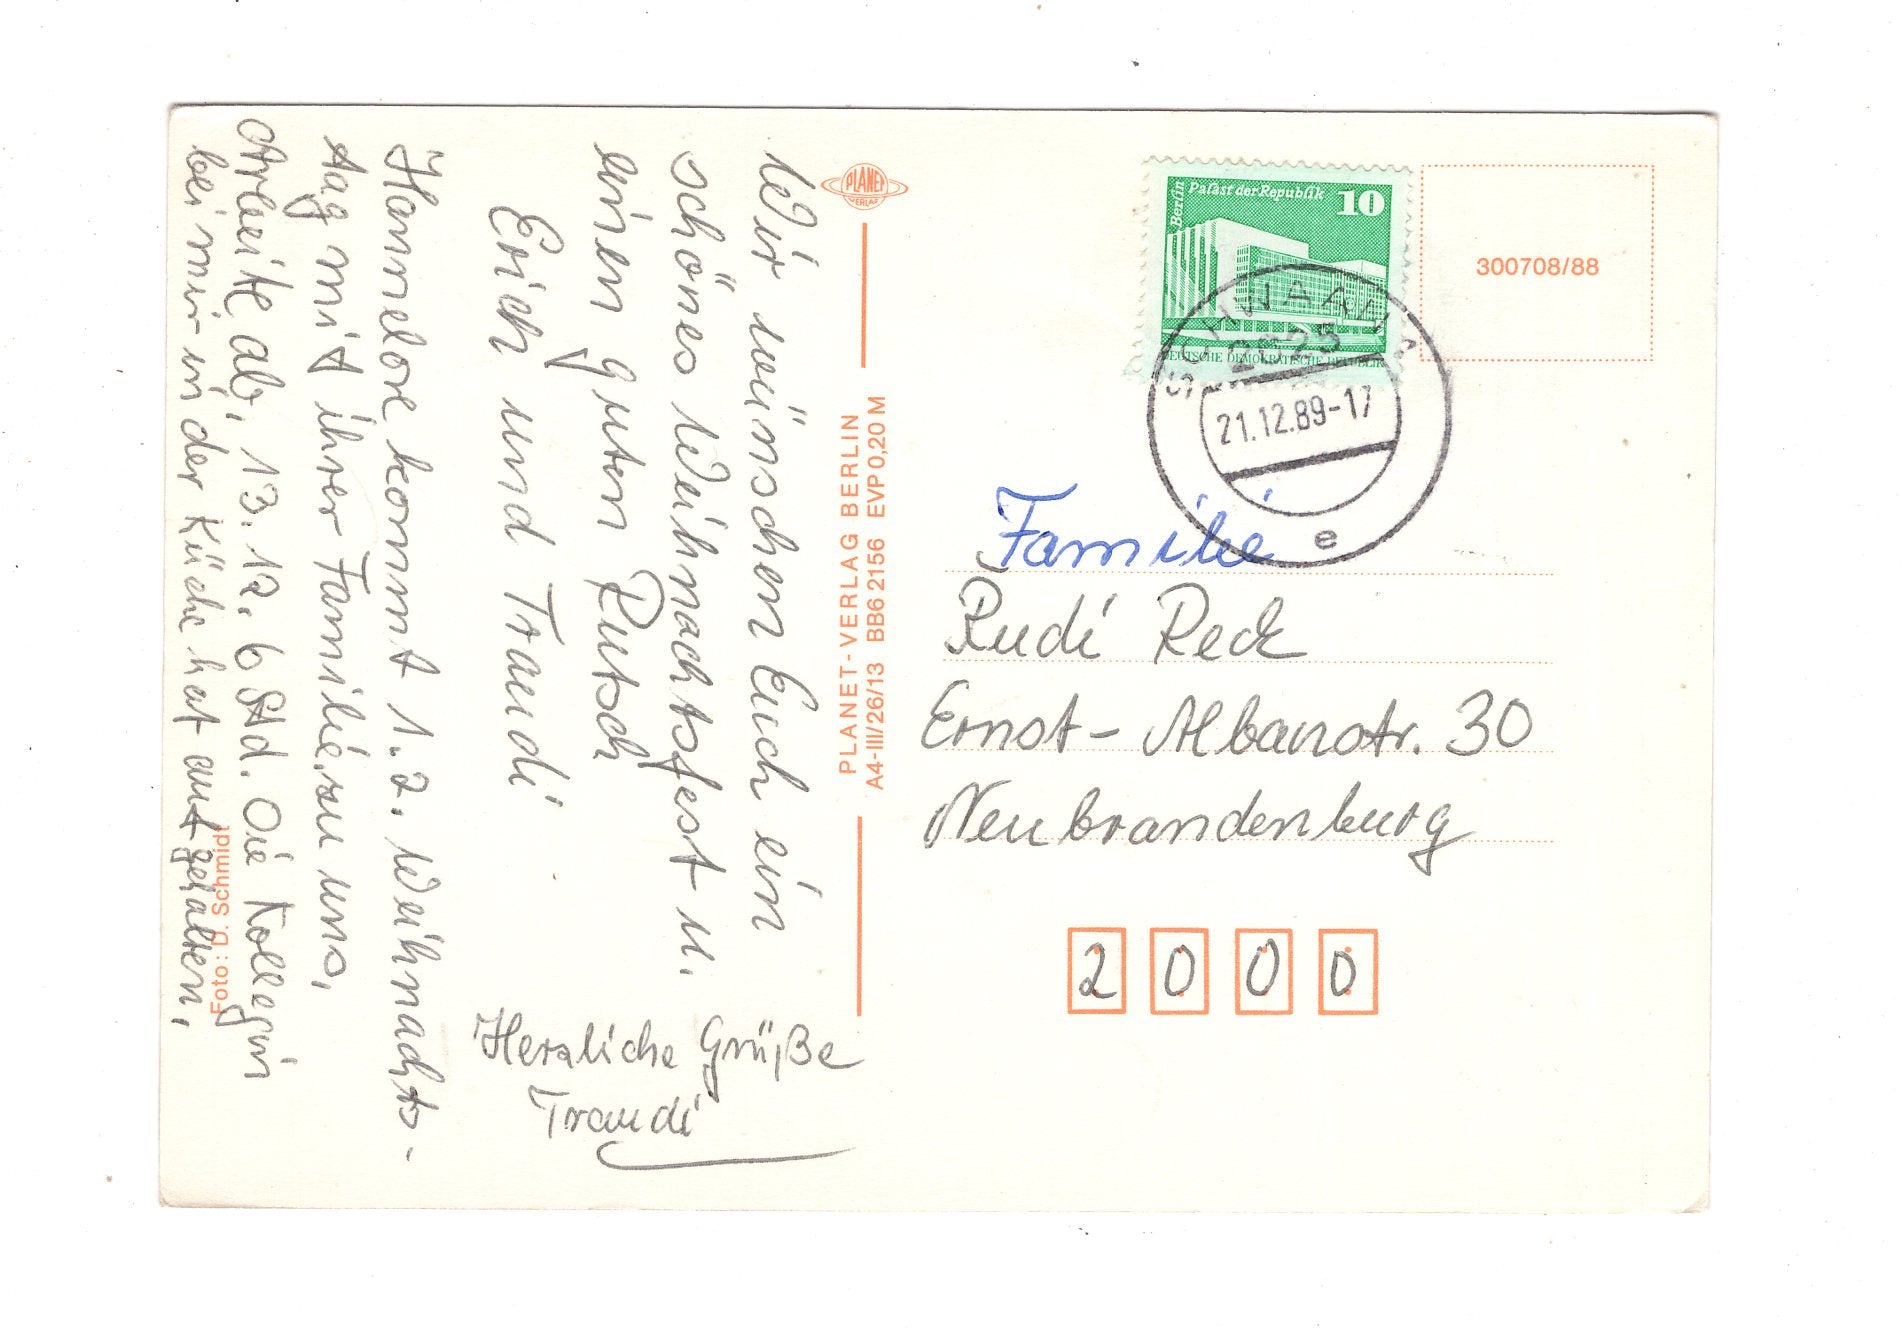 Wir wünschen Euch ein
schönes Weihnachtsfest u.
einen guten Rutsch
Erich und Traudi
Hannelore kommt 1. 2. Weihnachts-
tag mit ihrer Familie zu uns,
Arbeite ab, 13. 12. 6 Std. Die Kollegin
bei mir in der Küche hat aufgehalten,
Herzliche Grüße
Traudi
PLANET
VERLAG
PLANET-VERLAG BERLIN
A4-III/26/13 BB6 2156 EVP 0,20 M
Foto: D. Schmidt
Berlin Palast der Republik 10
DEUTSCHE DEMOKRATISCHE REPUBLIK
SCHWAAN
21.12.89-17
e
300708/88
Familie
Rudi Reck
Ernst-Albanstr. 30
Neubrandenburg
2000